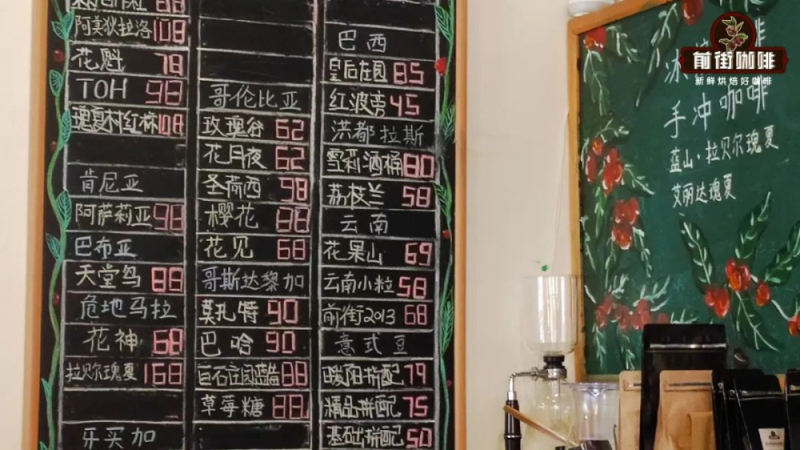 88
阿美狄拉洛 108
花魁 78
TOH 98
瑰夏村红标 108
肯尼亚
阿萨莉亚 98
巴布亚
天堂鸟 88
危地马拉
花神 68
拉贝尔瑰夏 168
牙买加
哥伦比亚
玫瑰谷 62
花月夜 62
圣荷西 98
樱花 88
花见 68
哥斯达黎加
莫扎特 90
巴哈 90
巨石庄园蓝莓 88
草莓糖 88
巴西
皇后庄园 85
红波旁 45
洪都拉斯
雪莉酒桶 80
荔枝兰 58
云南
花果山 69
云南小粒 58
前街2013 68
意式豆
暖阳拼配 79
精品拼配 75
基础拼配 50
前街咖啡
新鲜烘焙好咖啡
冰
手冲咖啡
蓝山·拉贝尔瑰夏
艾丽达瑰夏